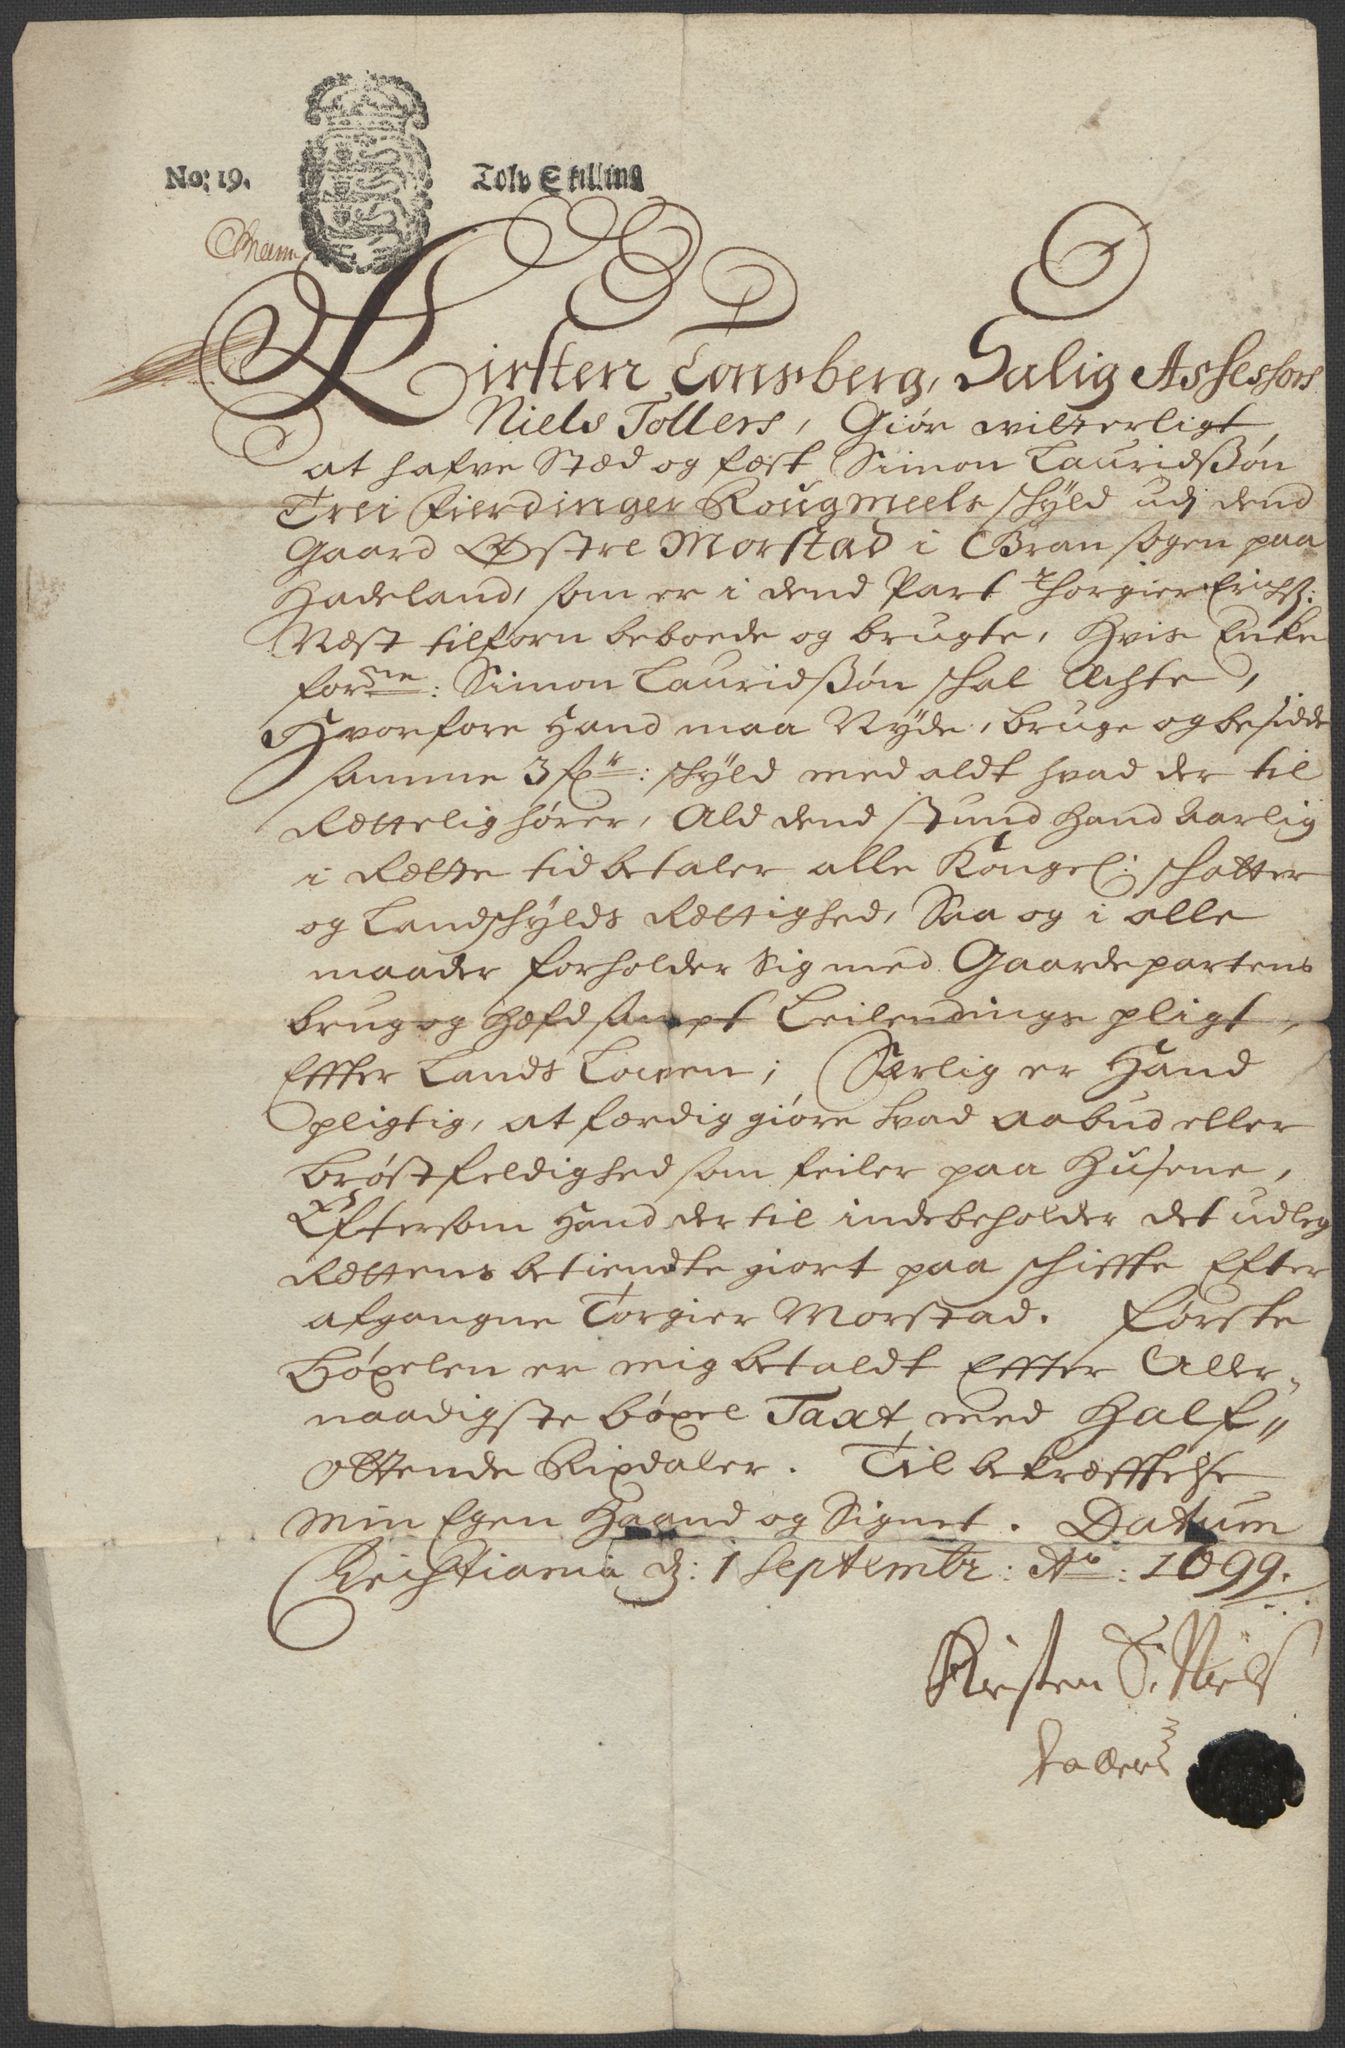 No: 19. Tolv Skilling
Kirsten Tonsberg, Salig Assessors
Niels Tollers, Giør witterligt,
at hafve Stæd og fæst Simon Lauridsßøn
Trei fierdinger Rougmeels schyld udj dend
Gaard Østre Morstad i Gran sogen paa
Hadeland, som er i dend Part Thorgier Erichß:
Næst tilforn beboede og brugte, Hvis Encke
forne: Simon Lauridsßøn schal Echte,
Hvorfore Hand maa Nyde, bruge og besidde
samme 3 fr: schyld med aldt hvad der til
Rettelig hører, Ald dend stund Hand Aarlig
i Rette tid betaler alle Kongel: schatter
og Landschylds Rettighed, Saa og i alle
maader forholder Sig med Gaardepartens
brug og Hæfd sampt Leilendings pligt,
Effter Lands Lowen; Særlig er Hand
pligtig, at færdig giøre hvad aabud eller
brøstfeldighed som feiler paa Husene,
Eftersom Hand der til indebeholder det udleg
Rettens betiendte giort paa schiffte Efter
afgangne Torgier Morstad. Førske
Bøxelen er mig betaldt Effter Aller-
naadigste bøxel Taxt med Half-
Ottende Rixdaler. Til bekræfftelse
min Egen Haand og Signet. Datum
Christiania d: 1 Septembr: Ao: 1699.
Kirsten S. Niels
tollers